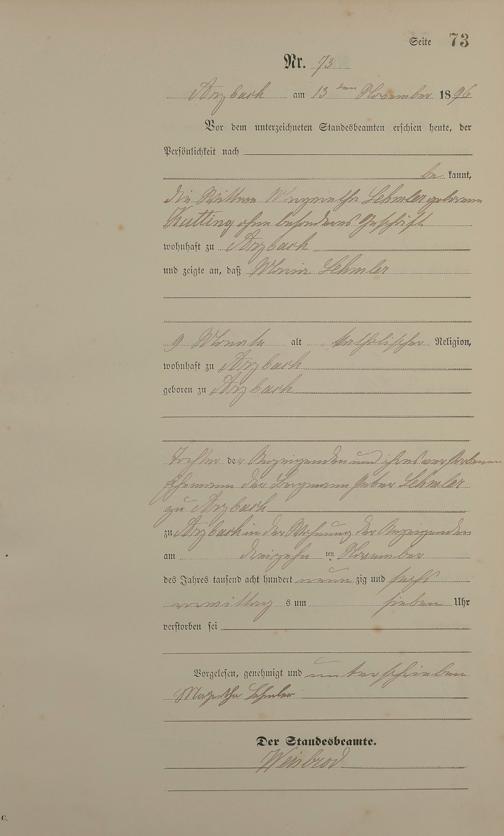 Seite 73
Nr. 73
Arzbach am 13 ten November 1896
Vor dem unterzeichneten Standesbeamten erschien heute, der
Persönlichkeit nach
be kannt,
die Wittwe Margaretha Lehmler geborene
Kutting ohne besonderes Geschäft
wohnhaft zu Arzbach
und zeigte an, daß Maria Lehmler
9 Monate alt katholischer Religion,
wohnhaft zu Arzbach
geboren zu Arzbach
Tochter der Anzeigenden und ihres verstorbenen
Ehemann der Bergmann Lehmler
zu Arzbach
zu Arzbach in der Wohnung der Anzeigenden
am dreizehn ten November
des Jahres tausend acht hundert neun zig und sechs
vormittag s um sieben Uhr
verstorben sei
Vorgelesen, genehmigt und unterschrieben
Lehmler
Der Standesbeamte.
Weisbrod
C.